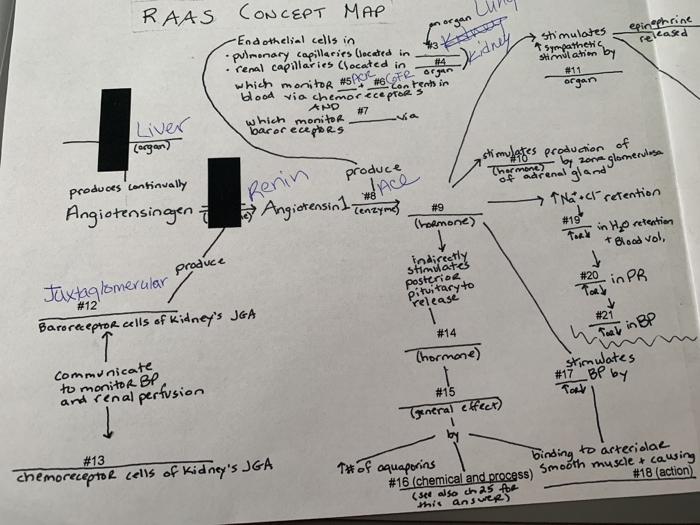 RAAS CONCEPT MAP
Endothelial cells in
an organ
Lung
• pulmonary capillaries (located in #3 Kidney
• renal capillaries (located in #4 Kidney
organ
which monitor #5 ACE + #6 GFR contents in
blood via chemoreceptors
AND
which monitor #7 via
baroreceptors
stimulates
↑ sympathetic
stimulation by
#11
organ
epinephrine
released
Liver
(organ)
produces continually
Angiotensinogen
Renin
Angiotensin 1
produce
#8 ACE
(enzyme)
#9
(hormone)
stimulates production of
#10 by zona glomerulosa
(hormone)
of adrenal gland
↑Na⁺+Cl⁻ retention
#19 in H₂O retention
↑or↓ + Blood vol,
#20 in PR
↑or↓
#21 in BP
↑or↓
produce
Juxtaglomerular
#12
Baroreceptor cells of Kidney's JGA
communicate
to monitor BP
and renal perfusion
#13
chemoreceptor cells of Kidney's JGA
indirectly
stimulates
posterior
pituitary to
release
#14
(hormone)
#15
(general effect)
by
↑# of aquaporins
#16 (chemical and process)
(see also ch 25 for
this answer)
stimulates
#17 BP by
↑or↓
binding to arteriolar
smooth muscle + causing
#18 (action)